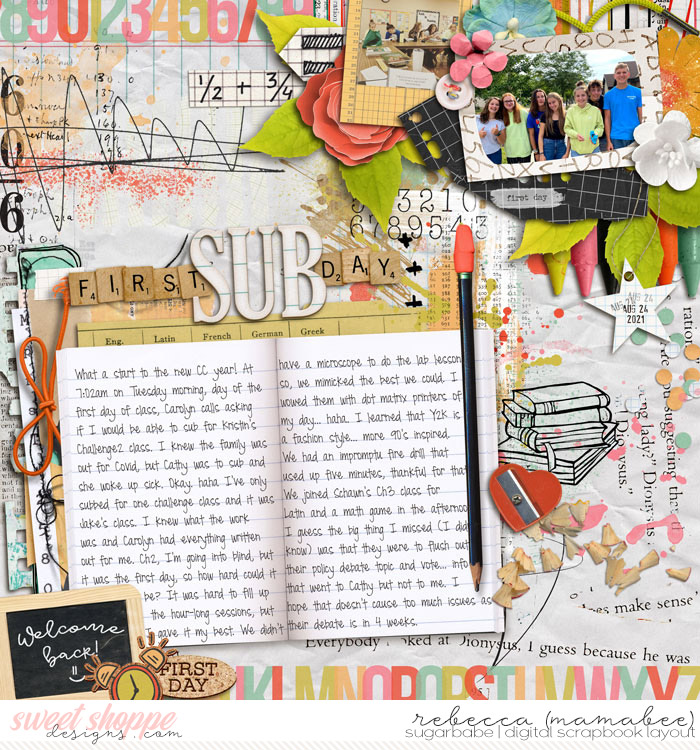 890123456789
1/2 + 3/4
next Year
3 2 1 0
6 7 8 9 5 4 3
first day
AUG 24
AUG 24
2021
FIRST SUB DAY
Eng. Latin French German Greek
What a start to the new CC year! At
7:02am on Tuesday morning, day of the
first day of class, Carolyn calls asking
if I would be able to sub for Kristin's
Challenge2 class. I knew the family was
out for Covid, but Cathy was to sub and
she woke up sick. Okay. haha I've only
subbed for one challenge class and it was
Jake's class. I knew what the work
was and Carolyn had everything written
out for me. Ch2, I'm going into blind, but
it was the first day, so how hard could it
be? It was hard to fill up
the hour-long sessions, but
gave it my best. We didn't
have a microscope to do the lab lesson
so, we mimicked the best we could. I
wowed them with dot matrix printers of
my day... haha. I learned that Y2K is
a fashion style... more 90's inspired.
We had an impromptu fire drill that
used up five minutes, thankful for that
We joined Schaun's Ch3 class for
Latin and a math game in the afternoon
I guess the big thing I missed (I did
know) was that they were to flush out
their policy debate topic and vote... info
that went to Cathy but not to me. I
hope that doesn't cause too much issues as
their debate is in 4 weeks.
lady?" Dionysus
"Dionysus."
does make sense"
Everybody looked at Dionysus, I guess because he was
Welcome
back!
FIRST
DAY
JKLMNOPQRSTUVWXYZ
sweet shoppe
designs.com
rebecca (mamabee)
sugarbabe | digital scrapbook layout